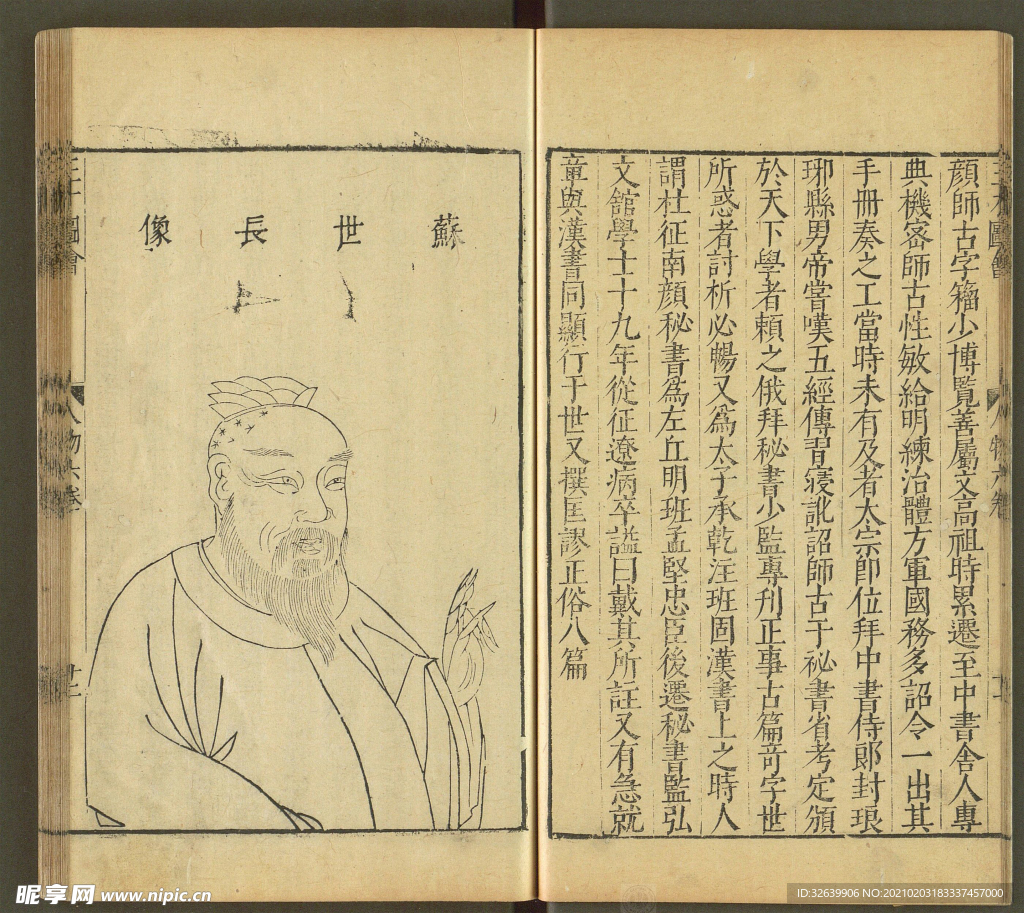 三才圖會
人物六卷
顔師古字籀少博覽善屬文高祖時累遷至中書舍人專
典機密師古性敏給明練治體方軍國務多詔令一出其
手册奏之工當時未有及者太宗即位拜中書侍郎封琅
琊縣男帝嘗嘆五經傳習寖訛詔師古于秘書省考定頒
於天下學者賴之俄拜秘書少監專刋正事古篇竒字世
所惑者討析必暢又爲太子承乾注班固漢書上之時人
謂杜征南顔秘書爲左丘明班孟堅忠臣後遷秘書監弘
文館學士十九年從征遼病卒謚曰戴其所註又有急就
章與漢書同顯行于世又撰匡謬正俗八篇
蘇世長像
圖會
人物六卷
十二
昵享网 www.nipic.cn
ID:32639906 NO:20210203183337457000